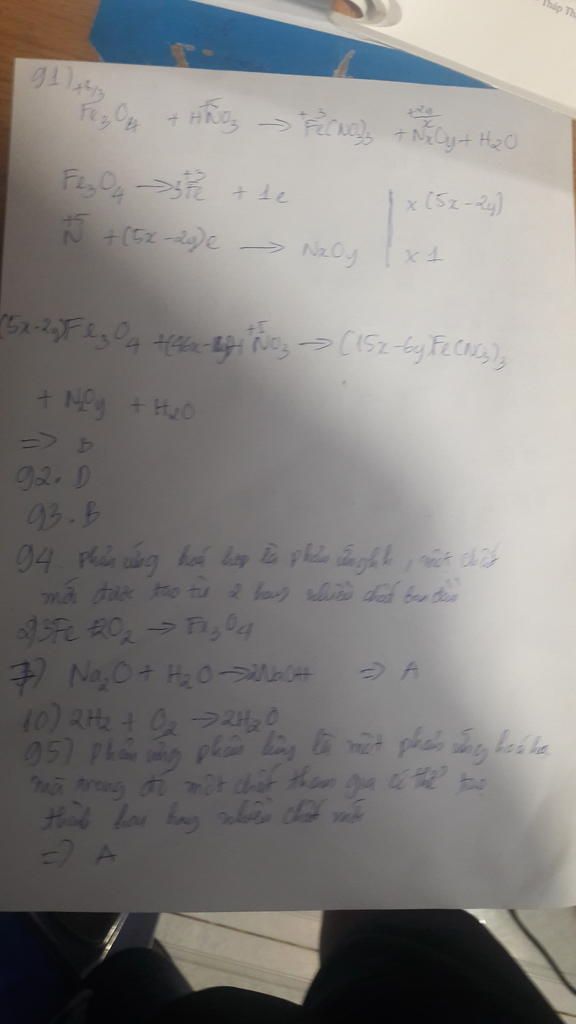 Tháp Th
91) +8/3 +5 +3 +2y/x
Fe3O4 + HNO3 → Fe(NO3)3 + NxOy + H2O
Fe3O4 → 3Fe+3 + 1e | x (5x-2y)
N+5 + (5x-2y)e → NxOy | x 1
(5x-2y)Fe3O4 + (46x- HNO3 → (15x-6y)Fe(NO3)3
+ NxOy + H2O
=> B
92. D
93. B
94. phản ứng hoá hợp là phản ứng hh, một chất
mới được tạo từ 2 hay nhiều chất ban đầu
2) 3Fe + 2O2 → Fe3O4
7) Na2O + H2O → 2NaOH => A
10) 2H2 + O2 → 2H2O
95) phản ứng phân hủy là một phản ứng hoá học
mà trong đó một chất tham gia có thể tạo
thành hai hay nhiều chất mới
=> A